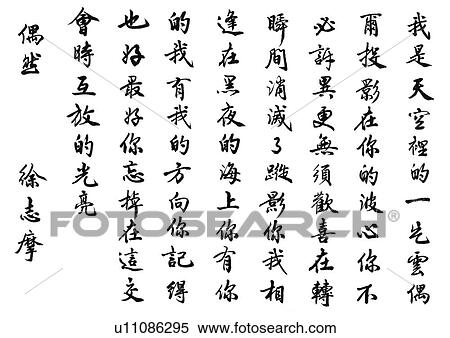 我是天空裡的一片雲偶
爾投影在你的波心你不
必訝異更無須歡喜在轉
瞬間消滅了蹤影你我相
逢在黑夜的海上你有你
的我有我的方向你記得
也好最好你忘掉在這交
會時互放的光亮
偶然 徐志摩
FOTOSEARCH®
u11086295 www.fotosearch.com